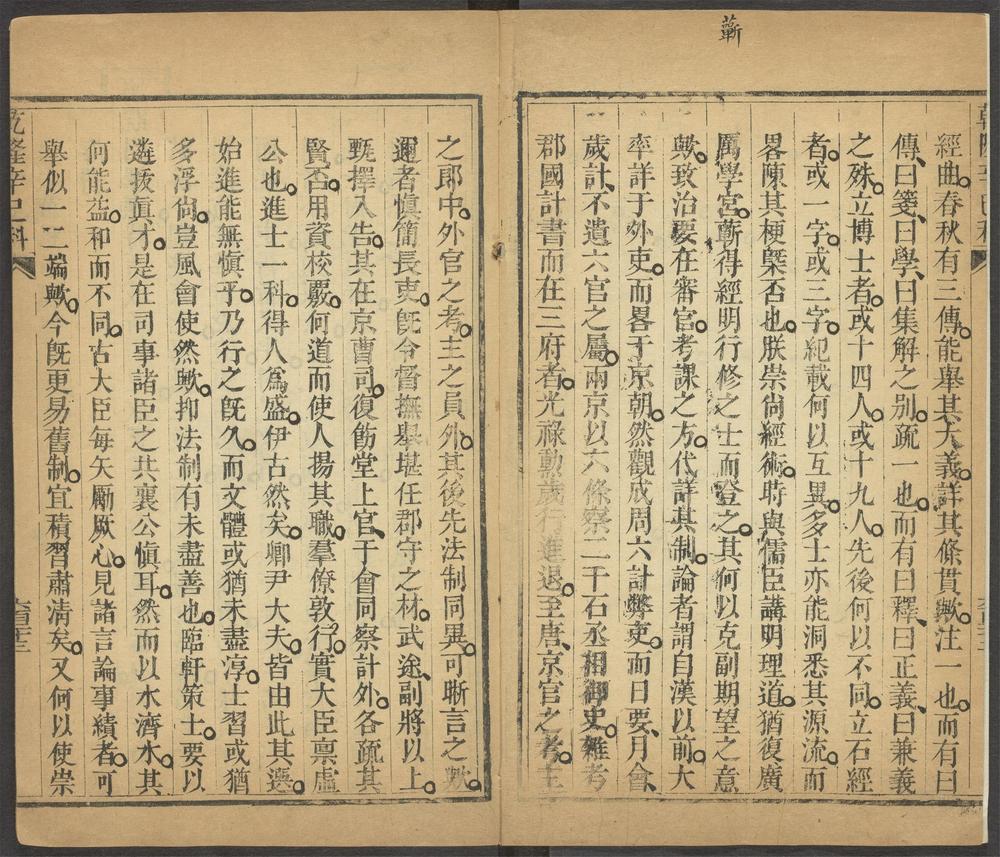 蘄
經曲春秋有三傳能舉其大義詳其條貫歟注一也而有曰
傳曰箋曰學曰集解之别疏一也而有曰釋曰正義曰兼義
之殊立博士者或十四人或十九人先後何以不同立石經
者或一字或三字紀載何以互異多士亦能洞悉其源流而
畧陳其梗槩否也朕崇尚經術時與儒臣講明理道猶復廣
厲學宮蘄得經明行修之士而登之其何以克副期望之意
歟致治要在審官考課之方代詳其制論者謂自漢以前大
率詳于外吏而畧于京朝然觀成周六計弊吏而日要月會
歲計不遺六官之屬兩京以六條察二千石丞相御史雜考
郡國計書而在三府者光祿勳歲行進退至唐京官之考主
之郎中外官之考主之員外其後先法制同異可晰言之歟
邇者愼簡長吏旣令督撫舉堪任郡守之材武途副將以上
甄擇入告其在京曹司復飭堂上官于會同察計外各疏其
賢否用資核覈何道而使人揚其職羣僚敦行實大臣禀虛
公也進士一科得人爲盛伊古然矣卿尹大夫皆由此其選
始進能無愼乎乃行之旣久而文體或猶未盡淳士習或猶
多浮尙豈風會使然歟抑法制有未盡善也臨軒策士要以
遴拔眞才是在司事諸臣之共襄公愼耳然而以水濟水其
何能益和而不同古大臣每矢勵厥心見諸言論事績者可
舉似一二端歟今旣更易舊制宜積習肅清矣又何以使崇
乾隆辛巳科